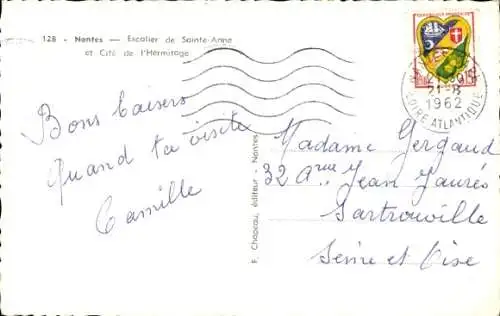 128 - Nantes — Escalier de Sainte-Anne
et Cité de l'Hermitage
Bons baisers
Quand ta visite
Camille
F. Chapeau, éditeur - Nantes
21-8
1962
LOIRE ATLANTIQUE
Madame Gergaud
32 Aᵛᵘᵉ Jean Jaurès
Sartrouville
Seine et Oise